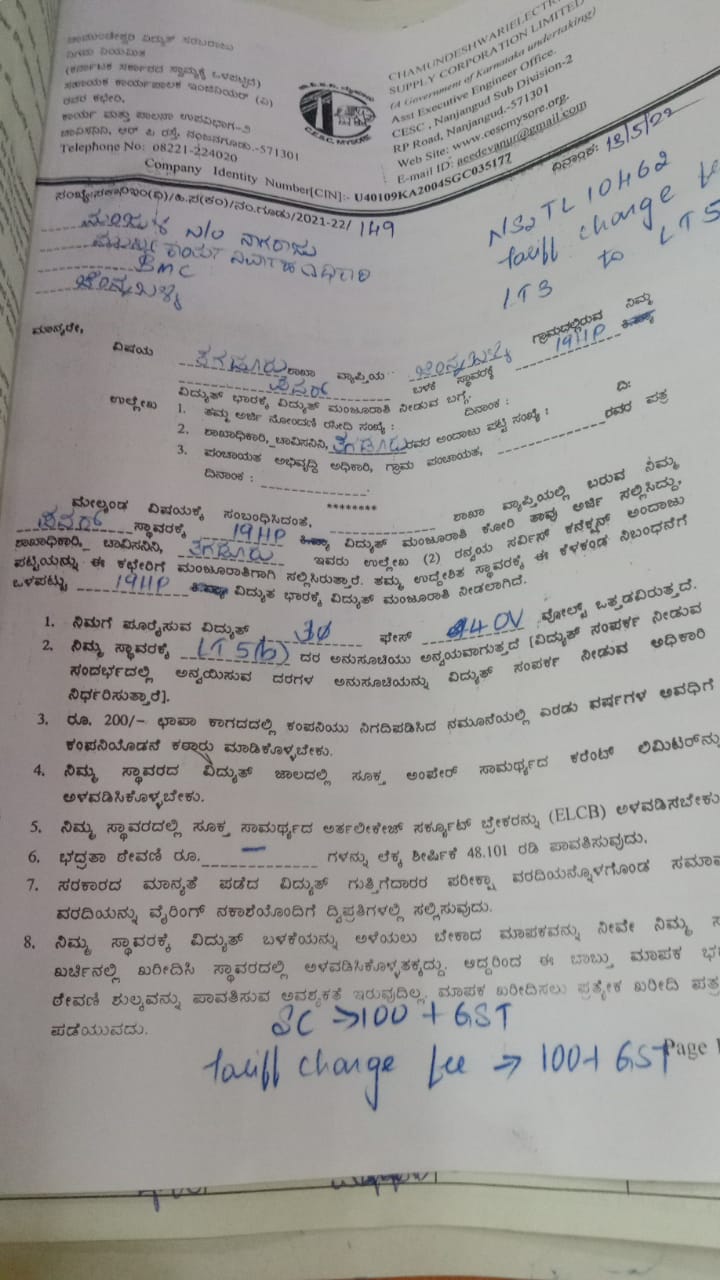 ಚಾಮುಂಡೇಶ್ವರಿ ವಿದ್ಯುತ್ ಸರಬರಾಜು
ನಿಗಮ ನಿಯಮಿತ
(ಕರ್ನಾಟಕ ಸರ್ಕಾರದ ಸ್ವಾಮ್ಯಕ್ಕೆ ಒಳಪಟ್ಟಿದೆ)
ಸಹಾಯಕ ಕಾರ್ಯಪಾಲಕ ಇಂಜಿನಿಯರ್ (ವಿ)
ರವರ ಕಛೇರಿ,
ಕಾರ್ಯ ಮತ್ತು ಪಾಲನಾ ಉಪವಿಭಾಗ-೨
ಚಾವಿಸನಿನಿ, ಆರ್ ಪಿ ರಸ್ತೆ, ನಂಜನಗೂಡು.-571301
Telephone No: 08221-224020
C.E.S.C. MYSORE
CHAMUNDESHWARIELECTR
SUPPLY CORPORATION LIMITED
(A Government of Karnataka undertaking)
Asst Executive Engineer Office.
CESC , Nanjangud Sub Division-2
RP Road, Nanjangud.-571301
Web Site: www.cescmysore.org.
E-mail ID: aeedevanur@gmail.com
Company Identity Number[CIN]:- U40109KA2004SGC035177
/2021-22/ 149
ದಿನಾಂಕ: 18/5/22
NS2TL 10462
tariff charge fe
LT3 to LT5
ಮಂಜುಳ W/o ನಾಗರಾಜು
BMC
ಮಾನ್ಯರೇ,
ವಿಷಯ ತಗಡೂರು ಶಾಖಾ ವ್ಯಾಪ್ತಿಯ ಗ್ರಾಮದಲ್ಲಿರುವ ನಿಮ್ಮ
ಪವರ್ ಬಳಕೆ ಸ್ಥಾವರಕ್ಕೆ 19HP
ವಿದ್ಯುತ್ ಭಾರಕ್ಕೆ ವಿದ್ಯುತ್ ಮಂಜೂರಾತಿ ನೀಡುವ ಬಗ್ಗೆ.
ಉಲ್ಲೇಖ 1. ತಮ್ಮ ಅರ್ಜಿ ನೋಂದಣಿ ರಸೀದಿ ಸಂಖ್ಯೆ : ದಿನಾಂಕ :
2. ಶಾಖಾಧಿಕಾರಿ, ಚಾವಿಸನಿನಿ, ತಗಡೂರು ರವರ ಅಂದಾಜು ಪಟ್ಟಿ ಸಂಖ್ಯೆ : ದಿ:
3. ಪಂಚಾಯತ ಅಭಿವೃದ್ಧಿ ಅಧಿಕಾರಿ, ಗ್ರಾಮ ಪಂಚಾಯತ, ರವರ ಪತ್ರ
ದಿನಾಂಕ :
********
ಮೇಲ್ಕಂಡ ವಿಷಯಕ್ಕೆ ಸಂಬಂಧಿಸಿದಂತೆ, ಶಾಖಾ ವ್ಯಾಪ್ತಿಯಲ್ಲಿ ಬರುವ ನಿಮ್ಮ
ಪವರ್ ಸ್ಥಾವರಕ್ಕೆ 19HP ವಿದ್ಯುತ್ ಮಂಜೂರಾತಿ ಕೋರಿ ತಾವು ಅರ್ಜಿ ಸಲ್ಲಿಸಿದ್ದು,
ಶಾಖಾಧಿಕಾರಿ, ಚಾವಿಸನಿನಿ, ತಗಡೂರು ಇವರು ಉಲ್ಲೇಖ (2) ರನ್ವಯ ಸರ್ವಿಸ್ ಕನೆಕ್ಷನ್ ಅಂದಾಜು
ಪಟ್ಟಿಯನ್ನು ಈ ಕಛೇರಿಗೆ ಮಂಜೂರಾತಿಗಾಗಿ ಸಲ್ಲಿಸಿರುತ್ತಾರೆ. ತಮ್ಮ ಉದ್ದೇಶಿತ ಸ್ಥಾವರಕ್ಕೆ ಈ ಕೆಳಕಂಡ ನಿಬಂಧನೆಗೆ
ಒಳಪಟ್ಟು 19HP ವಿದ್ಯುತ ಭಾರಕ್ಕೆ ವಿದ್ಯುತ್ ಮಂಜೂರಾತಿ ನೀಡಲಾಗಿದೆ.
1. ನಿಮಗೆ ಪೂರೈಸುವ ವಿದ್ಯುತ್ 3ϕ ಫೇಸ್ 440V ವೋಲ್ಟ್ ಒತ್ತಡವಿರುತ್ತದೆ.
2. ನಿಮ್ಮ ಸ್ಥಾವರಕ್ಕೆ LT5(b) ದರ ಅನುಸೂಚಿಯು ಅನ್ವಯವಾಗುತ್ತದೆ [ವಿದ್ಯುತ್ ಸಂಪರ್ಕ ನೀಡುವ
ಸಂದರ್ಭದಲ್ಲಿ ಅನ್ವಯಿಸುವ ದರಗಳ ಅನುಸೂಚಿಯನ್ನು ವಿದ್ಯುತ್ ಸಂಪರ್ಕ ನೀಡುವ ಅಧಿಕಾರಿ
ನಿರ್ಧರಿಸುತ್ತಾರೆ].
3. ರೂ. 200/- ಛಾಪಾ ಕಾಗದದಲ್ಲಿ ಕಂಪನಿಯು ನಿಗದಿಪಡಿಸಿದ ನಮೂನೆಯಲ್ಲಿ ಎರಡು ವರ್ಷಗಳ ಅವಧಿಗೆ
ಕಂಪನಿಯೊಡನೆ ಕರಾರು ಮಾಡಿಕೊಳ್ಳಬೇಕು.
4. ನಿಮ್ಮ ಸ್ಥಾವರದ ವಿದ್ಯುತ್ ಜಾಲದಲ್ಲಿ ಸೂಕ್ತ ಅಂಪೇರ್ ಸಾಮರ್ಥ್ಯದ ಕರೆಂಟ್ ಲಿಮಿಟರ್‌ನ್ನು
ಅಳವಡಿಸಿಕೊಳ್ಳಬೇಕು.
5. ನಿಮ್ಮ ಸ್ಥಾವರದಲ್ಲಿ ಸೂಕ್ತ ಸಾಮರ್ಥ್ಯದ ಅರ್ತಲೀಕೇಜ್ ಸರ್ಕ್ಯೂಟ್ ಬ್ರೇಕರನ್ನು (ELCB) ಅಳವಡಿಸಬೇಕು
6. ಭದ್ರತಾ ಠೇವಣಿ ರೂ. - ಗಳನ್ನು ಲೆಕ್ಕ ಶೀರ್ಷಿಕೆ 48.101 ರಡಿ ಪಾವತಿಸುವುದು.
7. ಸರಕಾರದ ಮಾನ್ಯತೆ ಪಡೆದ ವಿದ್ಯುತ್ ಗುತ್ತಿಗೆದಾರರ ಪರೀಕ್ಷಾ ವರದಿಯನ್ನೊಳಗೊಂಡ ಸಮಾಪ
ವರದಿಯನ್ನು ವೈರಿಂಗ್ ನಕಾಶೆಯೊಂದಿಗೆ ದ್ವಿಪ್ರತಿಗಳಲ್ಲಿ ಸಲ್ಲಿಸುವುದು.
8. ನಿಮ್ಮ ಸ್ಥಾವರಕ್ಕೆ ವಿದ್ಯುತ್ ಬಳಕೆಯನ್ನು ಅಳೆಯಲು ಬೇಕಾದ ಮಾಪಕವನ್ನು ನೀವೇ ನಿಮ್ಮ ಸ
ಖರ್ಚಿನಲ್ಲಿ ಖರೀದಿಸಿ ಸ್ಥಾವರದಲ್ಲಿ ಅಳವಡಿಸಿಕೊಳ್ಳತಕ್ಕದ್ದು. ಆದ್ದರಿಂದ ಈ ಬಾಬ್ತು ಮಾಪಕ ಭದ
ಠೇವಣಿ ಶುಲ್ಕವನ್ನು ಪಾವತಿಸುವ ಅವಶ್ಯಕತೆ ಇರುವುದಿಲ್ಲ. ಮಾಪಕ ಖರೀದಿಸಲು ಪ್ರತ್ಯೇಕ ಖರೀದಿ ಪತ್ರ
ಪಡೆಯುವದು.
SC → 100 + GST
tariff charge fee → 100 + GST
Page 1